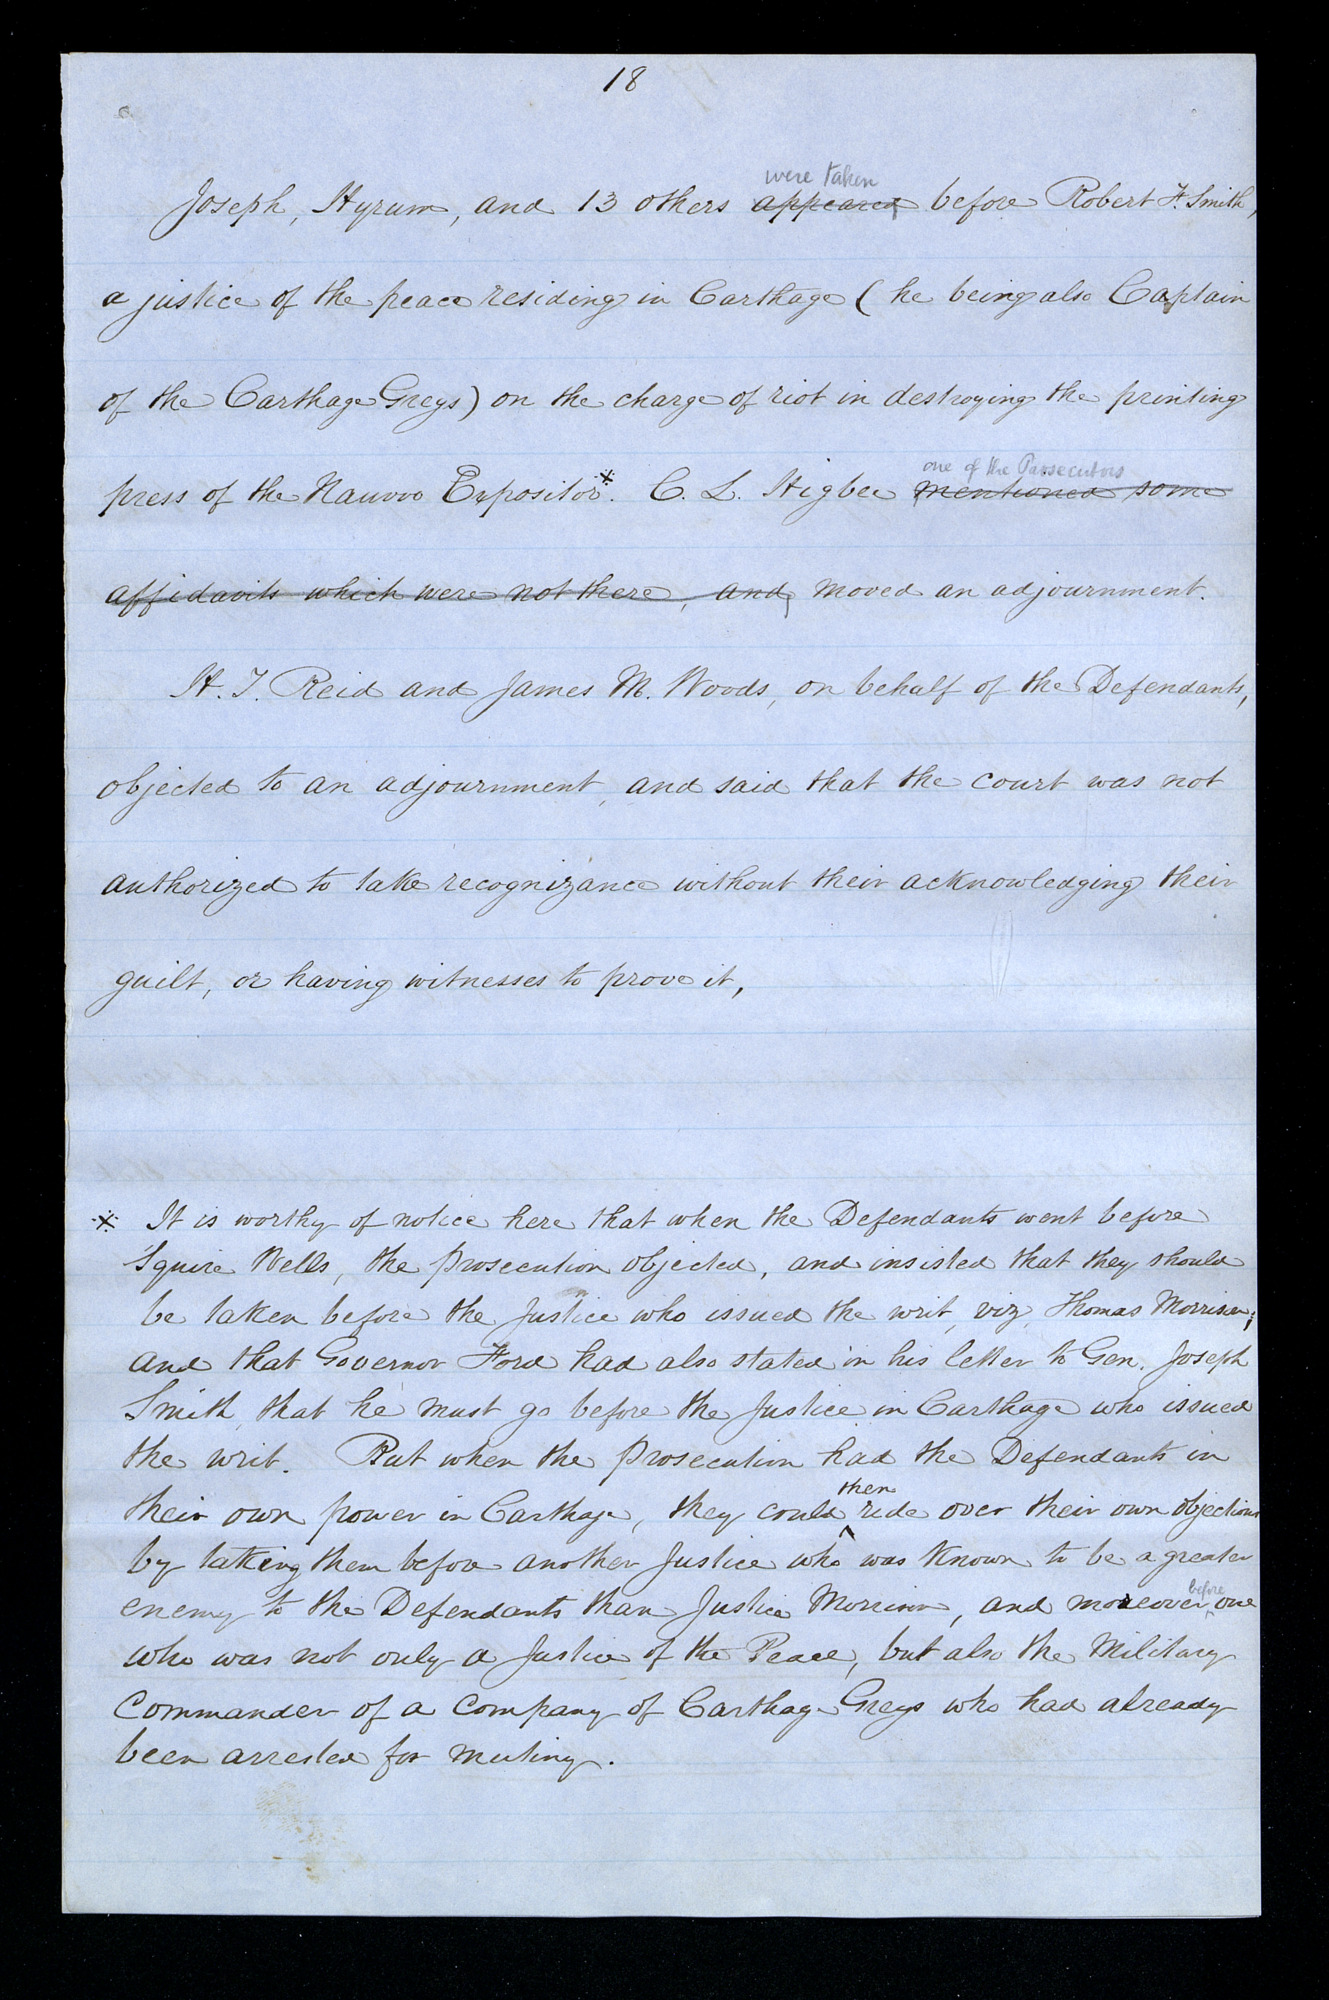 18
were taken
Joseph, Hyrum, and 13 others appeared before Robert F. Smith,
a justice of the peace residing in Carthage (he being also Captain
of the Carthage Greys) on the charge of riot in destroying the printing
one of the Prosecutors
press of the Nauvoo Expositor.* C. L. Higbee mentioned some
affidavits which were not there, and, moved an adjournment.
H. T. Reid and James M. Woods, on behalf of the Defendants,
objected to an adjournment, and said that the court was not
authorized to take recognizance without their acknowledging their
guilt, or having witnesses to prove it,
* It is worthy of notice here that when the Defendants went before
'Squire Wells, the prosecution objected, and insisted that they should
be taken before the Justice who issued the writ, viz, Thomas Morrison;
and that Governor Ford had also stated in his letter to Gen. Joseph
Smith, that he must go before the Justice in Carthage who issued
the writ. But when the prosecution had the Defendants in
then
their own power in Carthage, they could ^ ride over their own objections
by taking them before another Justice who was known to be a greater
before
enemy to the Defendants than Justice Morrison, and moreover ^ one
who was not only a Justice of the Peace, but also the Military
Commander of a company of Carthage Greys who had already
been arrested for mutiny.